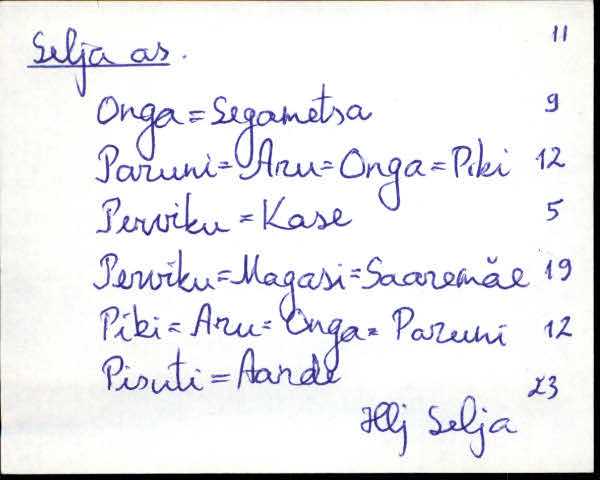 Selja as. 11
Onga = Segametsa 9
Paruni = Aru = Onga = Piki 12
Perviku = Kase 5
Perviku = Magasi = Saaremäe 19
Piki = Aru = Onga = Paruni 12
Pisuti = Aande 23
Hlj Selja